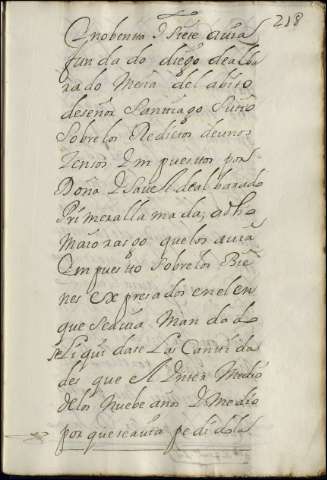 218
Y nobenta y siete auia
fundado diego de alba
rado Mesia del abito
de señor Santtiago su tio
sobre los Reditos de unos
zensos Ympuesttos por
Doña Ysauel de albarado
Primera llamada, a dho
maiorasgo que los auia
Ympuestto sobre los Bie
nes expresados en el en
que se auia Mandado
se liquidase Las Cantida
des que Al Ynter Medio
de los Nuebe años y Medio
porque se auia pedido la